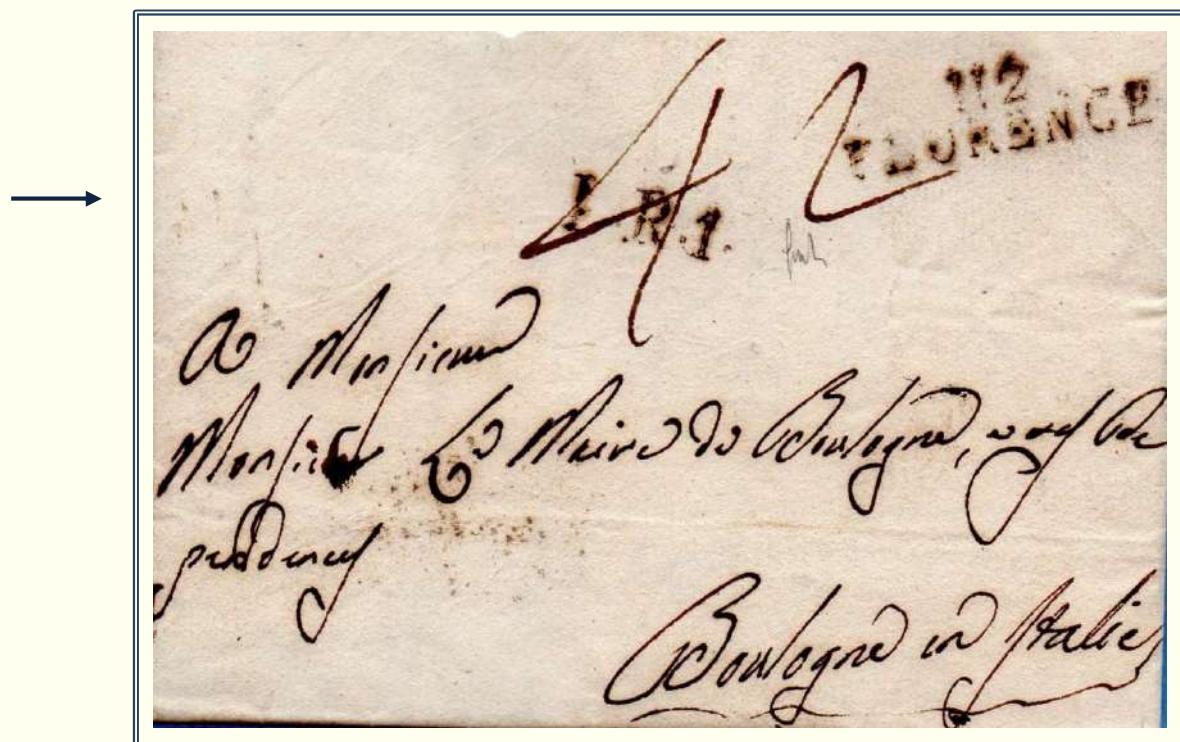 112
FLORENCE
4 2
R.1.
A Monsieur
Monsieur Le Maire de Boulogne, De
pendences
Boulogne en Italie